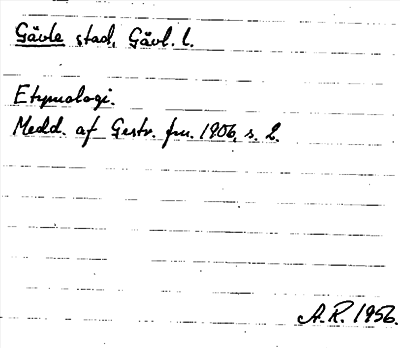 Gävle stad, Gävl. l.
Etymologi.
Medd. af Gestr. fm. 1906, s. 2.
A.R. 1956.